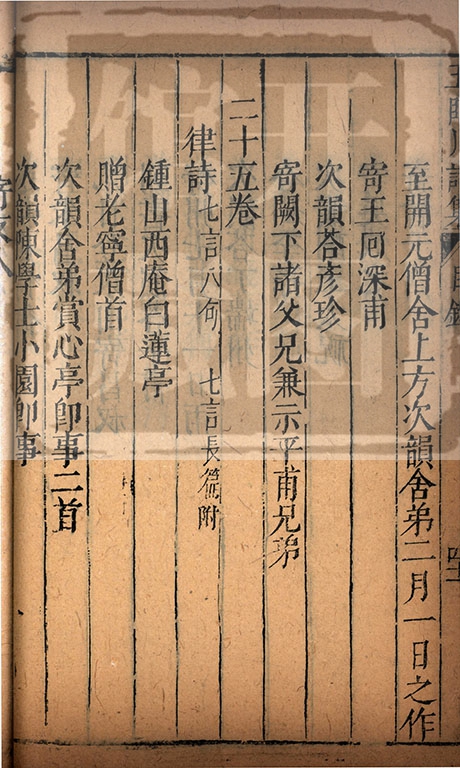 至開元僧舍上方次韻舍弟二月一日之作
寄王囘深甫
次韻荅彥珍
寄闕下諸父兄兼示平甫兄弟
二十五卷
律詩七言八句七言長篇附
鍾山西庵白蓮亭
贈老寧僧首
次韻舍弟賞心亭卽事二首
次韻陳學士小園卽事